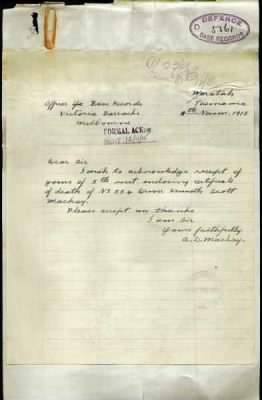 DEFENCE
5261
BASE RECORDS
Waratah
Tasmania
8th Novem. 1915
Officer i/c Base Records
Victoria Barracks
Melbourne
FORMAL ACK
SENT
Dear Sir
I wish to acknowledge receipt of
yours of 5th inst enclosing certificate
of death of No 554 Driver Kenneth Scott
Mackay.
Please accept my thanks
I am Sir
Yours faithfully
A.D. Mackay.